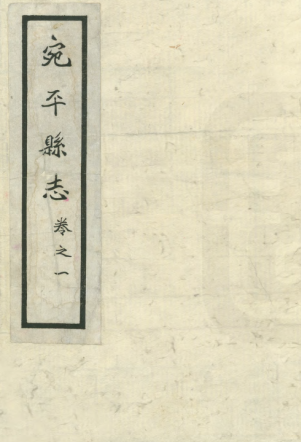 宛平縣志 卷之一